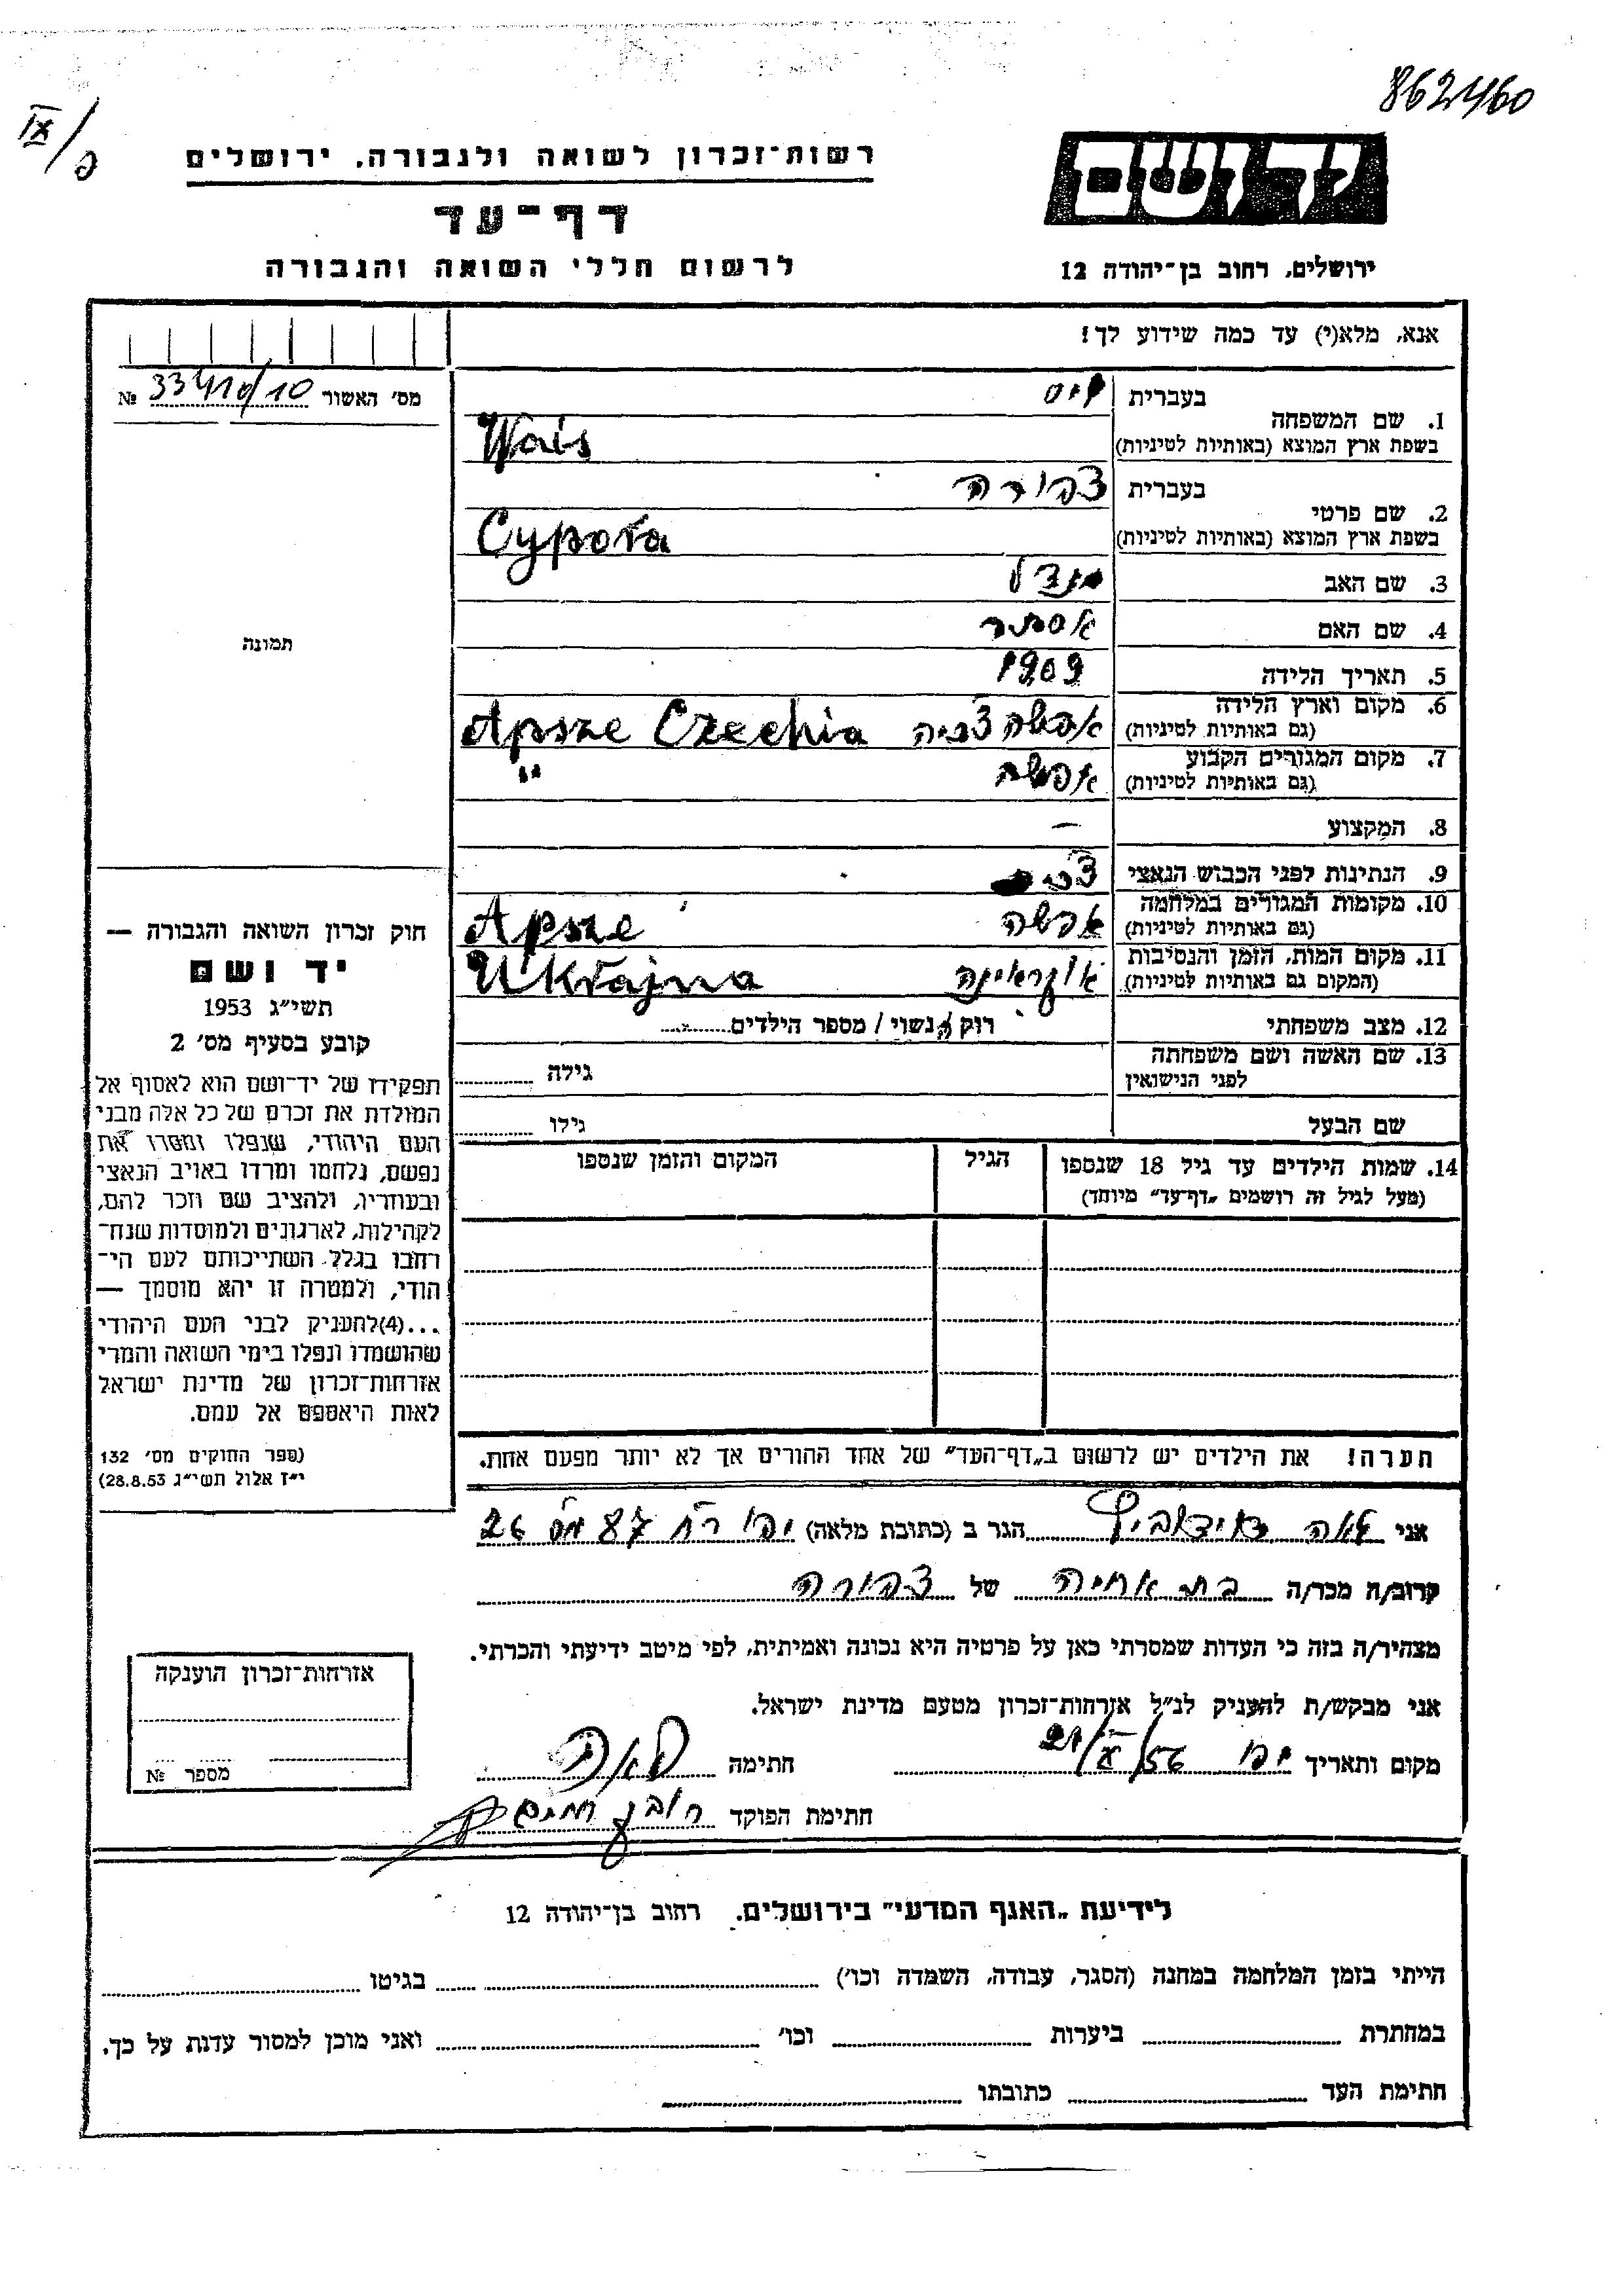 862460
IX/פ
יד ושם
רשות־זכרון לשואה ולגבורה, ירושלים
דף־עד
לרשום חללי השואה והגבורה
ירושלים, רחוב בן־יהודה 12
אנא, מלא(י) עד כמה שידוע לך!
מס׳ האשור № 33410/10
תמונה
1. שם המשפחה
בעברית ויס
בשפת ארץ המוצא (באותיות לטיניות) Wais
2. שם פרטי
בעברית צפורה
בשפת ארץ המוצא (באותיות לטיניות) Cypora
3. שם האב מנדל
4. שם האם אסתר
5. תאריך הלידה 1909
6. מקום וארץ הלידה אפשה צכיה Apsze Czechia
(גם באותיות לטיניות)
7. מקום המגורים הקבוע אפשה "
(גם באותיות לטיניות)
8. המקצוע –
9. הנתינות לפני הכבוש הנאצי
10. מקומות המגורים במלחמה אפשה Apsze
(גם באותיות לטיניות)
11. מקום המות, הזמן והנסיבות אוקראינה Ukrajna
(המקום גם באותיות לטיניות)
12. מצב משפחתי רוק/ה נשוי/ מספר הילדים
13. שם האשה ושם משפחתה גילה
לפני הנישואין
שם הבעל גילו
14. שמות הילדים עד גיל 18 שנספו הגיל המקום והזמן שנספו
(מעל לגיל זה רושמים „דף־עד״ מיוחד)
הערה! את הילדים יש לרשום ב„דף־העד״ של אחד ההורים אך לא יותר מפעם אחת.
חוק זכרון השואה והגבורה —
יד ושם
תשי״ג 1953
קובע בסעיף מס׳ 2
תפקידו של יד־ושם הוא לאסוף אל
המולדת את זכרם של כל אלה מבני
העם היהודי, שנפלו ומסרו את
נפשם, נלחמו ומרדו באויב הנאצי
ובעוזריו, ולהציב שם וזכר להם,
לקהילות, לארגונים ולמוסדות שנח־
רחבו בגלל השתייכותם לעם הי־
הודי, ולמטרה זו יהא מוסמך —
...(4)להעניק לבני העם היהודי
שהושמדו ונפלו בימי השואה והמרי
אזרחות־זכרון של מדינת ישראל
לאות היאספם אל עמם.
(ספר החוקים מס׳ 132
י״ז אלול תשי״ג 28.8.53)
אני לאה הגר ב (כתובת מלאה) יפו רח 87 מס 26
קרוב/ה מכר/ה בת אחיה של צפורה
מצהיר/ה בזה כי העדות שמסרתי כאן על פרטיה היא נכונה ואמיתית, לפי מיטב ידיעתי והכרתי.
אני מבקש/ת להעניק לנ״ל אזרחות־זכרון מטעם מדינת ישראל.
מקום ותאריך יפו 21/X/56 חתימה לאה
חתימת הפוקד ראובן חיים
אזרחות־זכרון הוענקה
מספר №
לידיעת „האגף המדעי״ בירושלים, רחוב בן־יהודה 12
הייתי בזמן המלחמה במחנה (הסגר, עבודה, השמדה וכו׳) בגיטו
במחתרת ביערות וכו׳ ואני מוכן למסור עדות על כך.
חתימת העד כתובתו